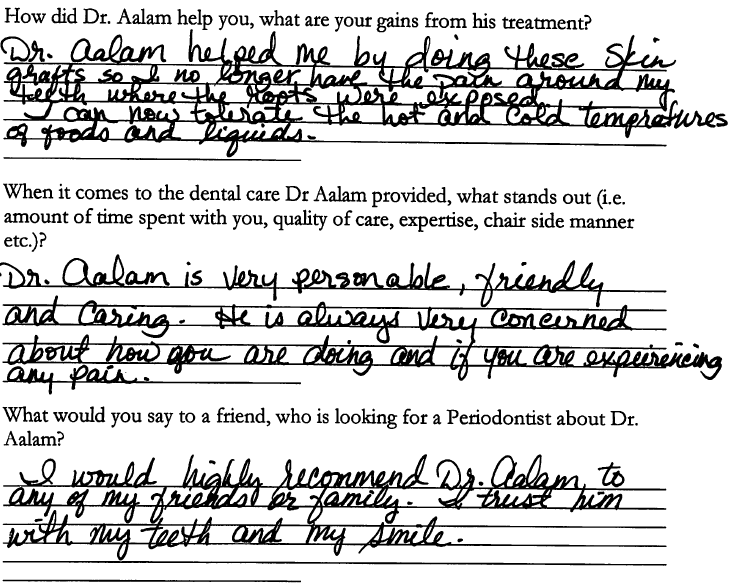 How did Dr. Aalam help you, what are your gains from his treatment?
Dr. Aalam helped me by doing these skin
grafts so I no longer have the pain around my
teeth where the roots were exposed.
I can now tolerate the hot and cold tempratures
of foods and liquids.
When it comes to the dental care Dr Aalam provided, what stands out (i.e.
amount of time spent with you, quality of care, expertise, chair side manner
etc.)?
Dr. Aalam is very personable, friendly
and caring. He is always very concerned
about how you are doing and if you are expeirencing
any pain.
What would you say to a friend, who is looking for a Periodontist about Dr.
Aalam?
I would highly recommend Dr. Aalam to
any of my friends or family. I trust him
with my teeth and my smile.